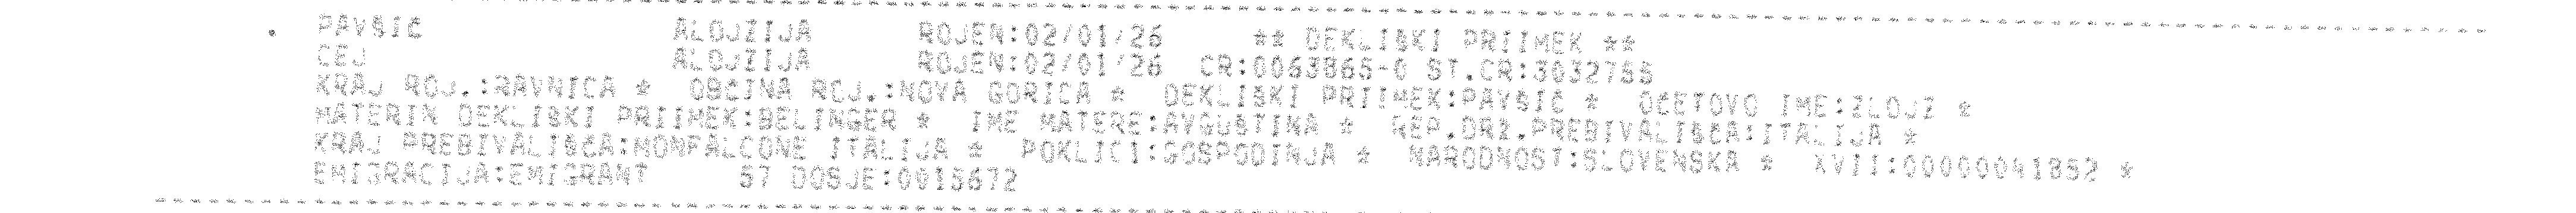 PAVŠIČ ALOJZIJA ROJEN:02/01/26 ** DEKLIŠKI PRIIMEK **
CEJ ALOJZIJA ROJEN:02/01/26 CR:0063865-0 ST.CR:3032755
KRAJ ROJ.:RAVNICA * OBCINA ROJ.:NOVA GORICA * DEKLIŠKI PRIIMEK:PAVŠIČ * OČETOVO IME:ZLOJZ *
MATERIN DEKLIŠKI PRIIMEK:BELINGER * IME MATERE:AVGUŠTINA * REP.DRZ.PREBIVALIŠČA:ITALIJA *
KRAJ PREBIVALIŠČA:MONFALCONE ITALIJA * POKLICI:GOSPODINJA * NARODNOST:SLOVENSKA * XVII:00000041852 *
EMIGRACIJA:EMIGRANT 57 DOSJE:0015672